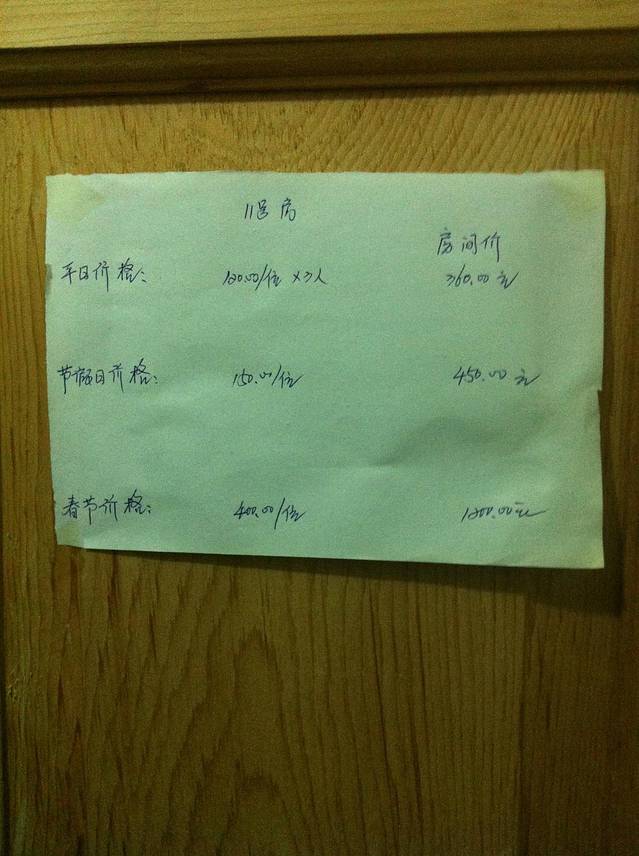 11号房
房间价
平日价格: 120.00/位 ×3人 360.00元
节假日价格: 150.00/位 450.00元
春节价格: 400.00/位 1200.00元